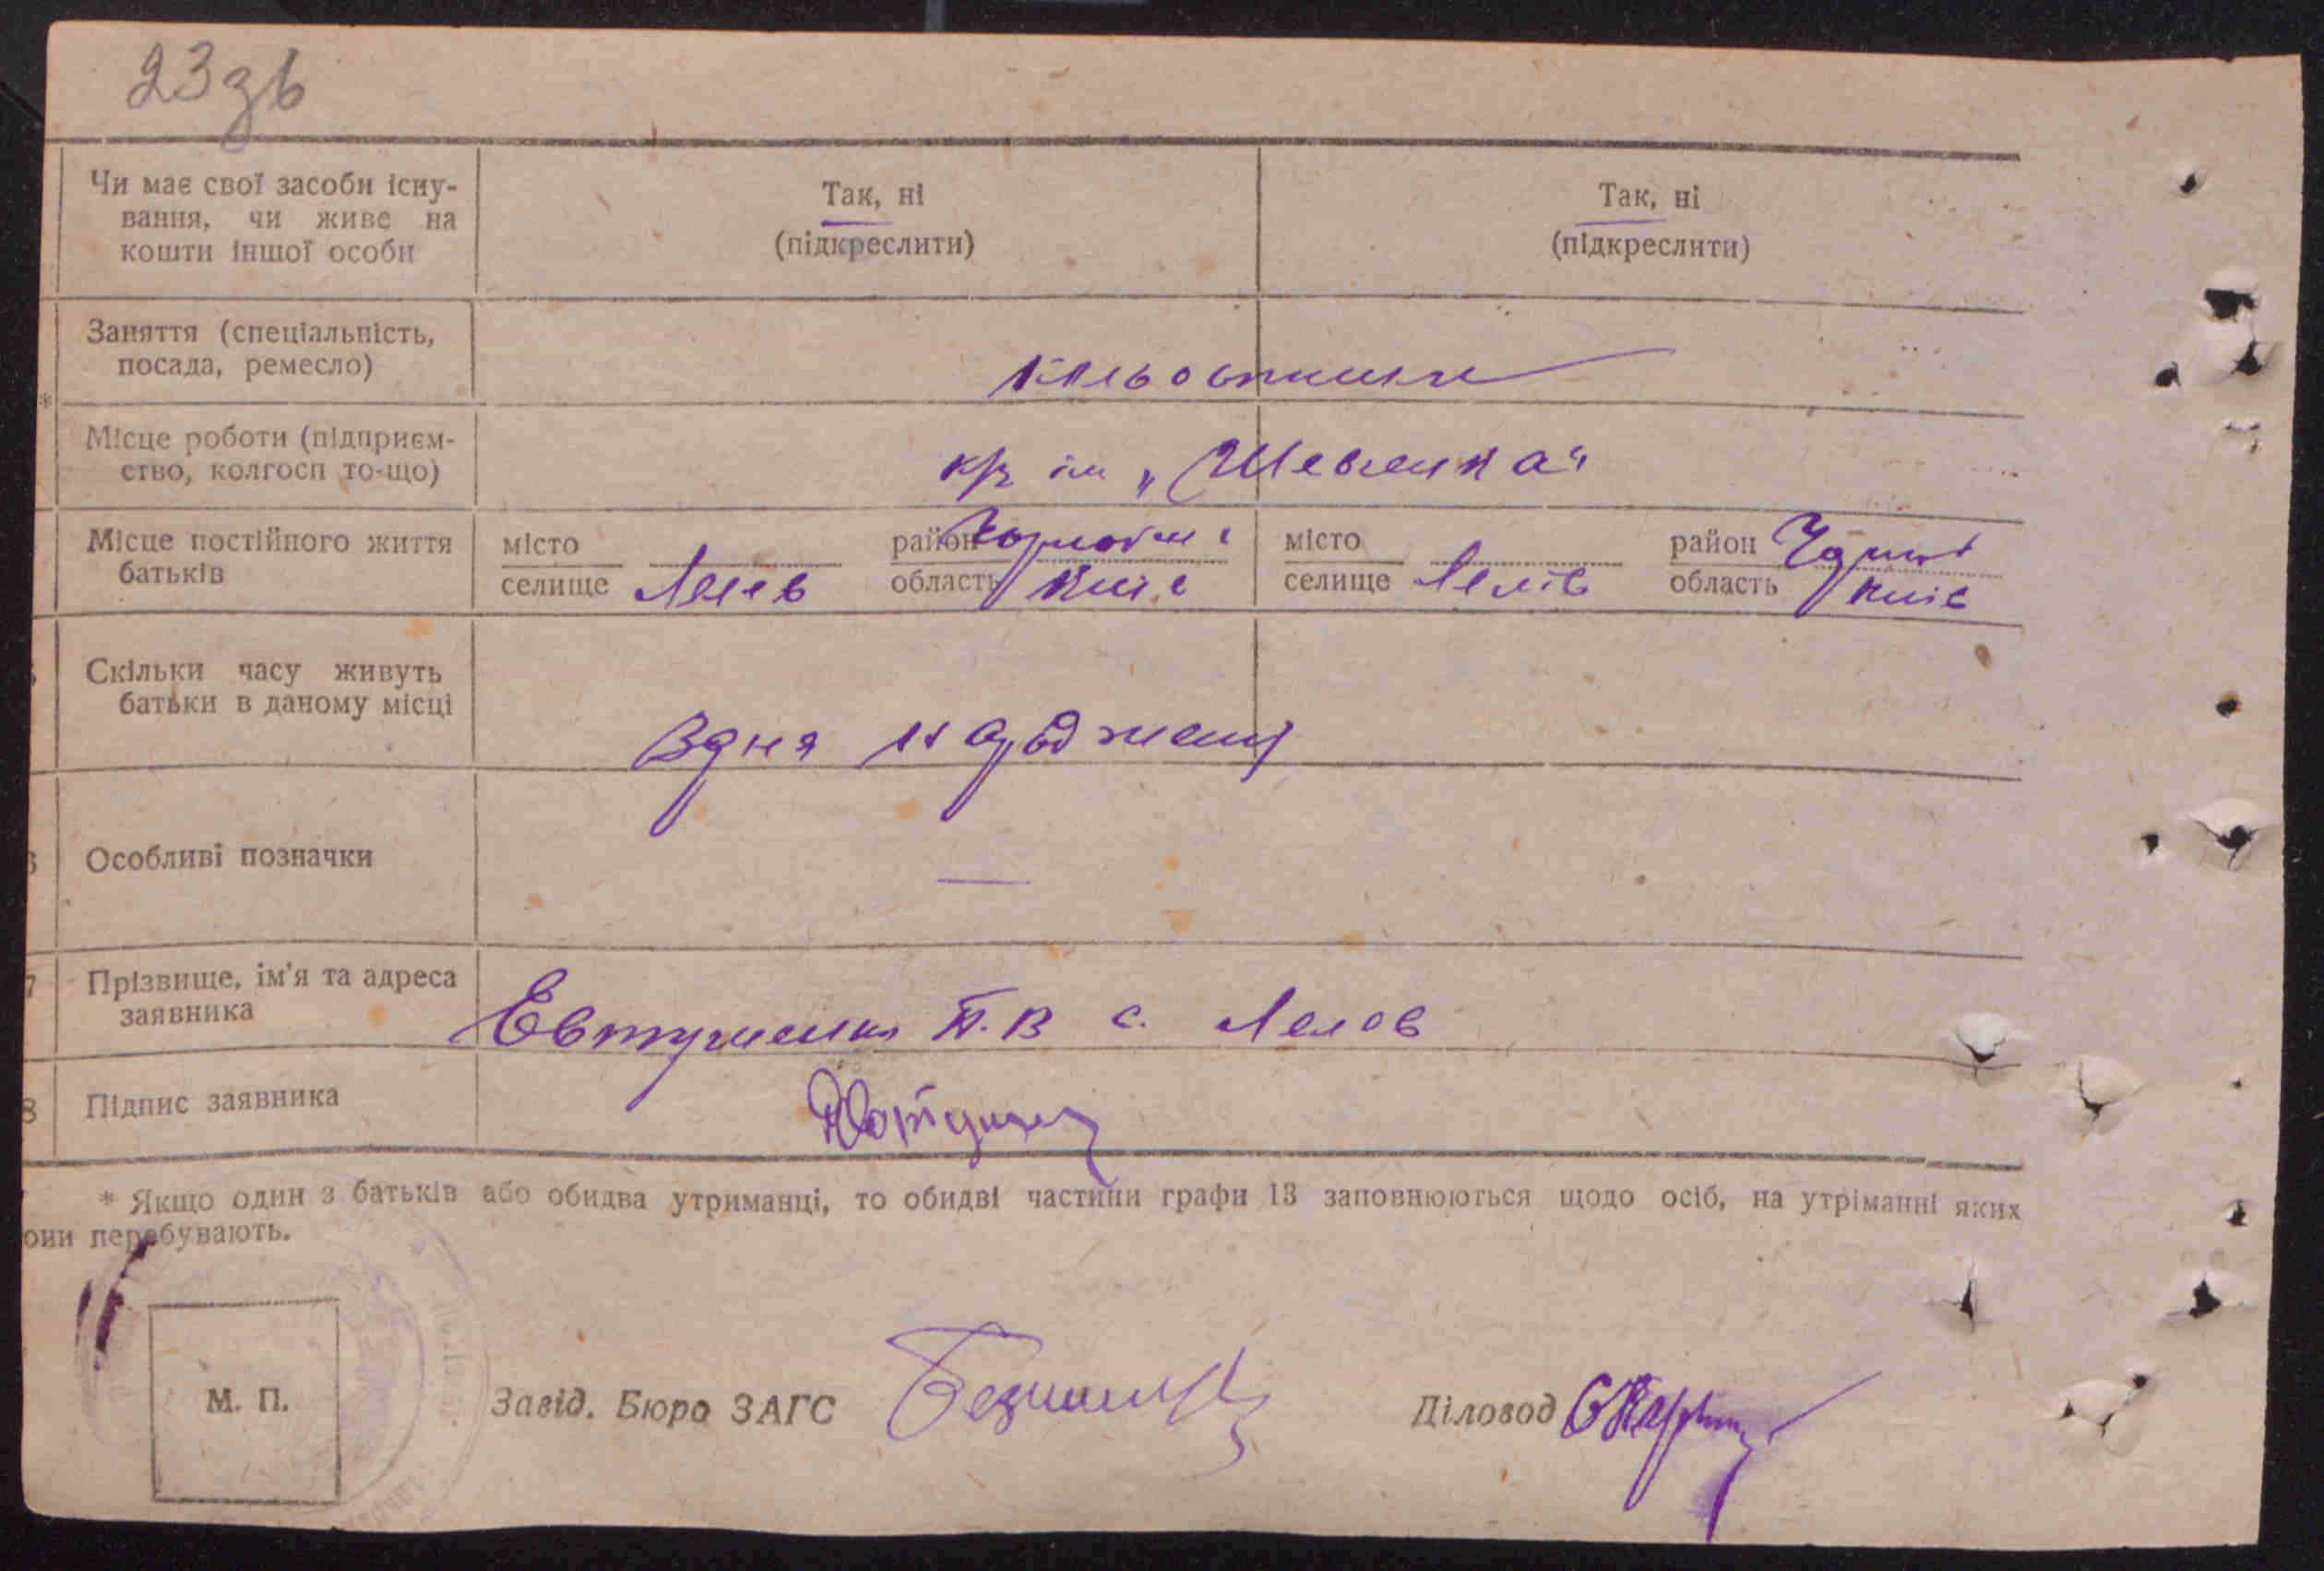 23 зв
Чи має свої засоби існу-
вання, чи живе на
кошти іншої особи
Так, ні
(підкреслити)
Так, ні
(підкреслити)
Заняття (спеціальність,
посада, ремесло)
*
Місце роботи (підприєм-
ство, колгосп то-що)
к/г ім „Шевченка“
Місце постійного життя
батьків
місто
селище Лелев
район
область Київ
місто
селище Лелів
район
область Київ
Скільки часу живуть
батьки в даному місці
Здня народження
Особливі позначки
—
7 Прізвище, ім'я та адреса
заявника
Евтушенко П.В с. Лелов
8 Підпис заявника
* Якщо один з батьків або обидва утриманці, то обидві частини графи 13 заповнюються щодо осіб, на утріманні яких
они перебувають.
М. П.
Завід. Бюро ЗАГС
Діловод